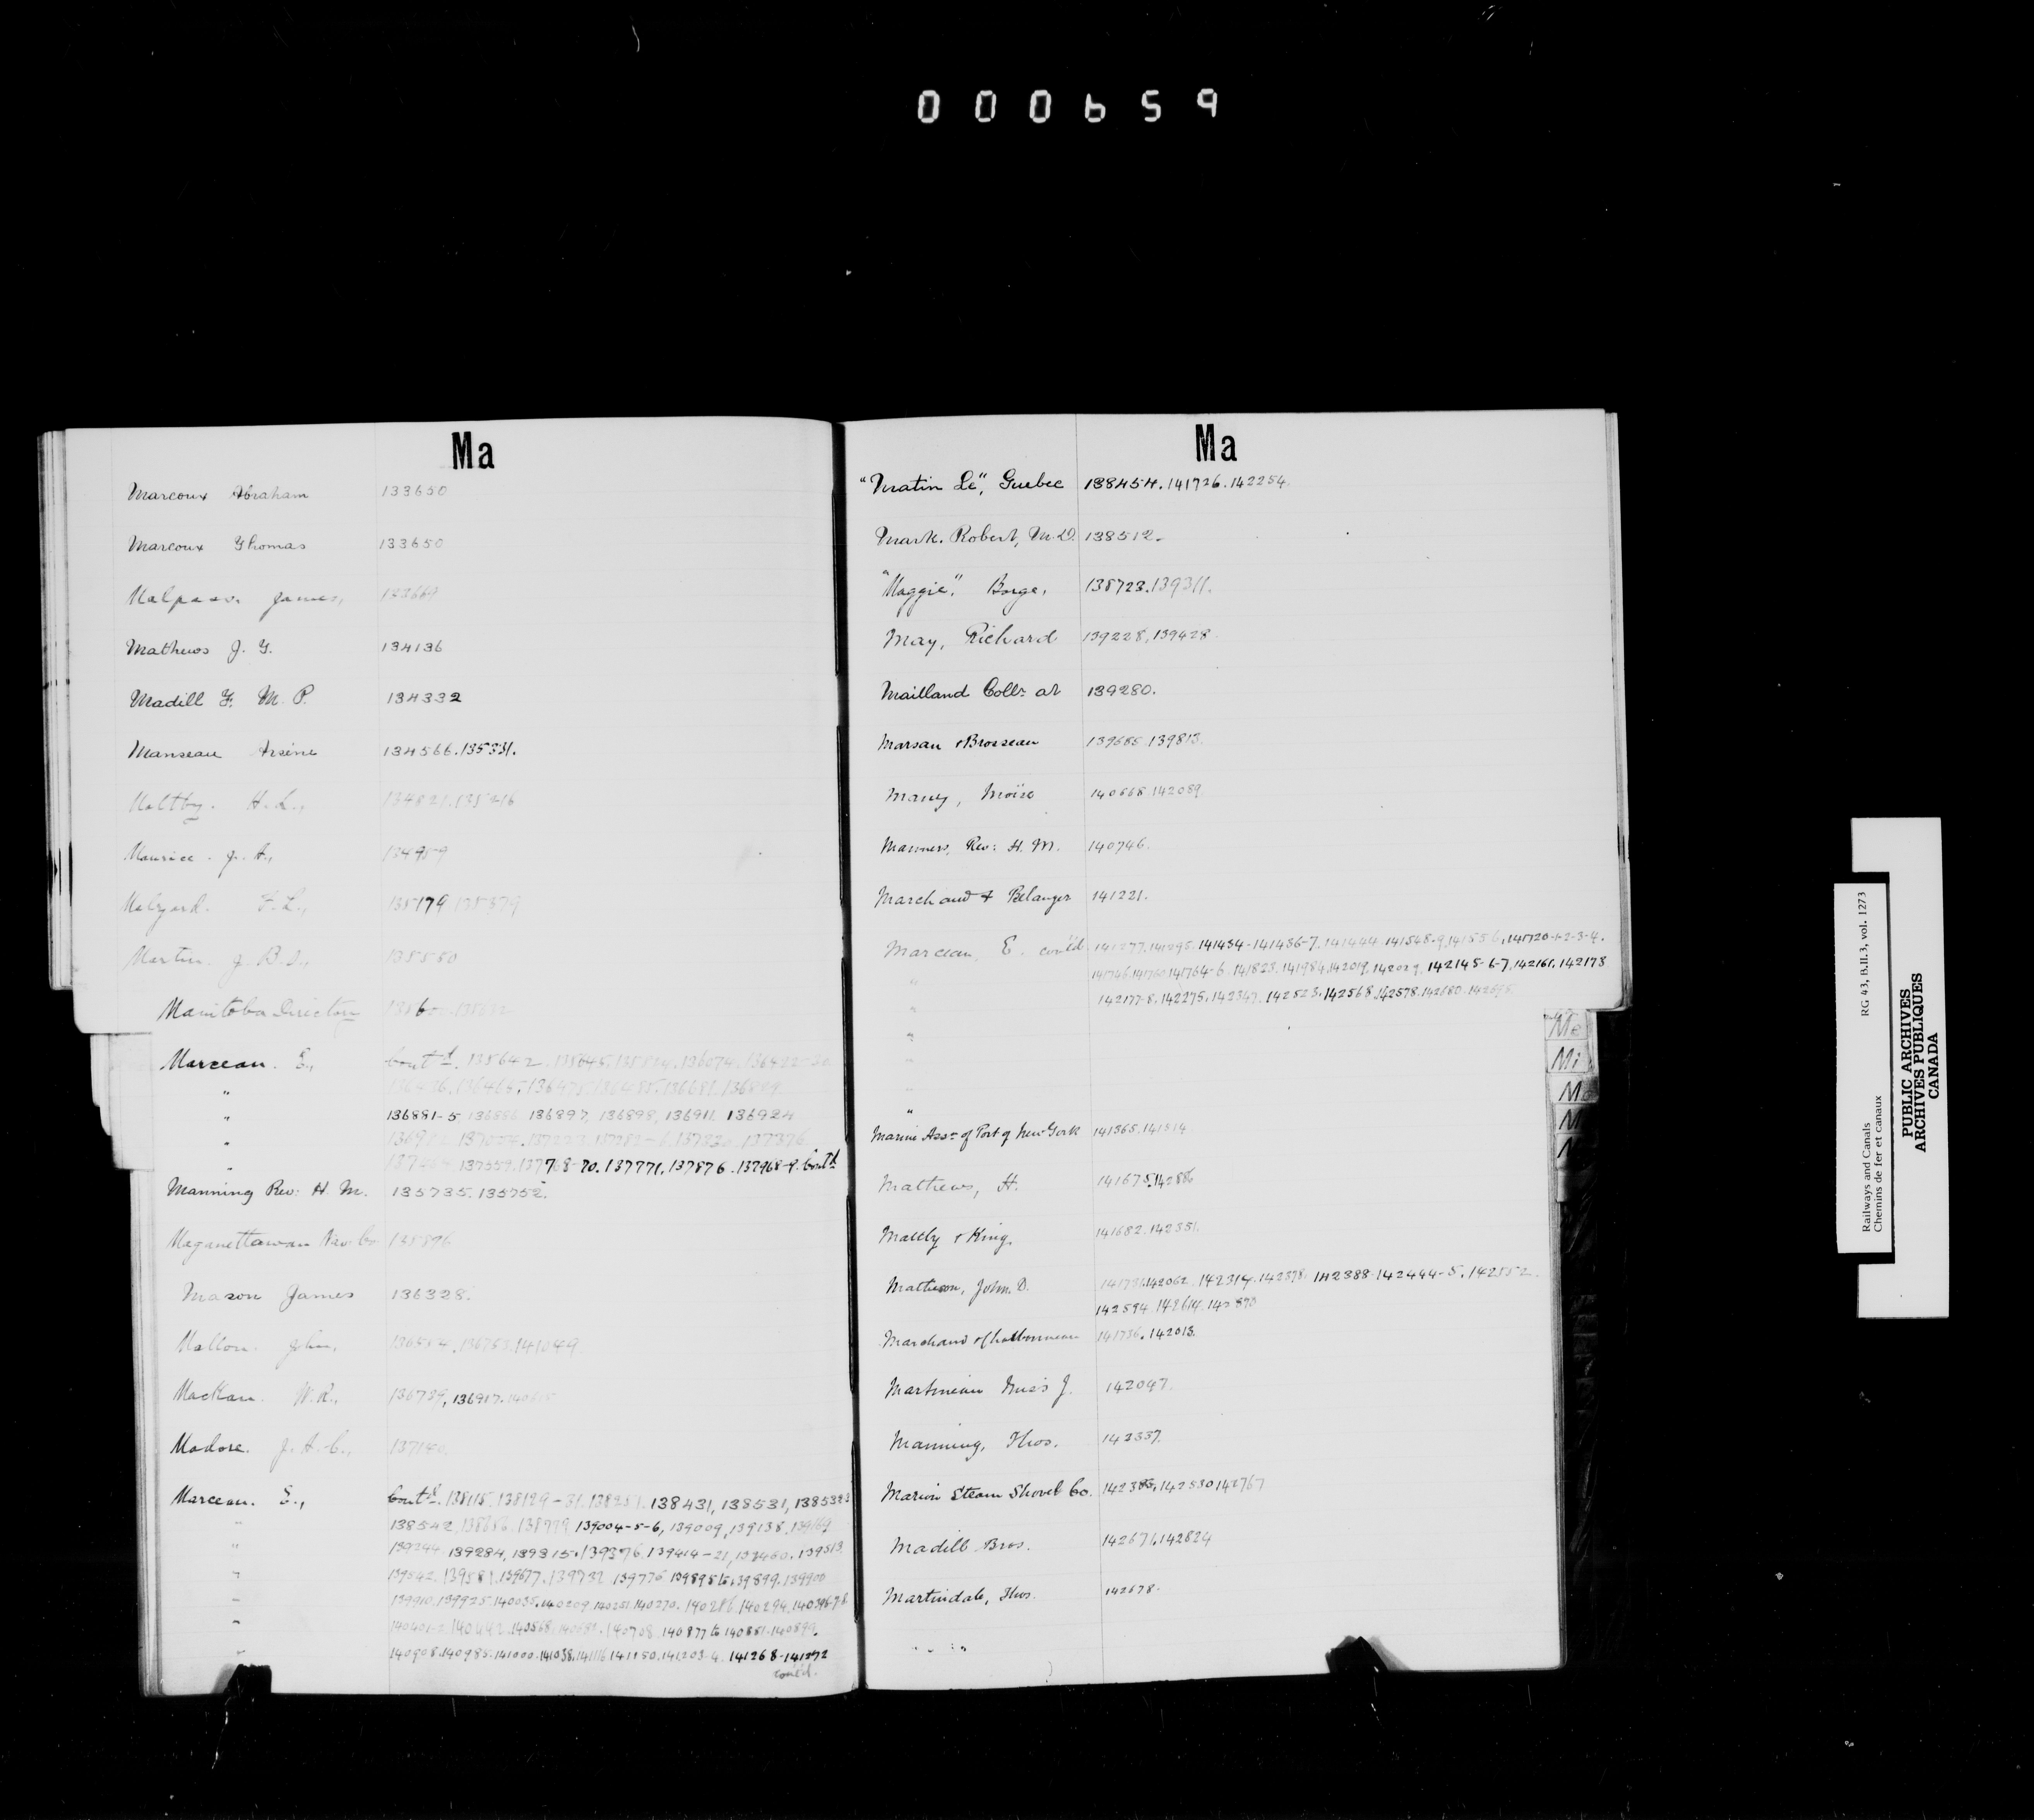 000659
Ma
Marcoux Abraham 133650
Marcoux Thomas 133650
Malpass. James, 133669
Mathews J. Y. 134136
Madill F. M. P. 134332
Manseau Arsène 134566.135331.
Maltby. H. L.,
Maurice. J. A., 134959
Malyard. F. L., 135179.135379
Martin. J. B. S., 135550
Manitoba Directory
Marceau. E., Cont'd. 135642.
"
" 136881-5 136886 136897, 136898, 136911. 136924
"
" 137559.137768-70.137771.137876.137968-9. Cont'd
Manning Rev: H. M. 135735.135752.
Maganettawan Nav. Co. 135896
Mason James 136328.
Mallon. John, 141049
MacKan. W. R., 136739, 136917.
Madore. J. A. C., 137140
Marceau. E., Cont'd. 138115.138129-31.138431, 138531, 138532
" 138542, 139004-5-6, 139009, 139138.139169
" 139244.139284, 139315.139376.139414-21, 139460.139513
" 139542.139581.139677.139732.139776 139895 to 139899.139900
" 139910.139925.140035.140209.140251.140270.140286.140294.140396-7-8
" 140401-2.140442.140568.140708.140877 to 140881.140899.
" 140908.140985.141000.141038.141116.141150.141203-4.141268-141272
Cont'd.
Ma
"Matin Le", Quebec 138454.141726.142254.
Mark. Robert, M.D. 138512.
"Maggie". Barge. 138723.139311.
May, Richard 139228,139428.
Mailland Collr. at 139280.
Marsan & Brosseau 139685.139813.
Many, Moïse 140668.142089
Manners, Rev: H. M. 140746.
Marchand & Belanger 141221.
Marceau, E. cont'd. 141277.141295.141434-141436-7.141444.141548-9.141556.141720-1-2-3-4.
" 141764-6.141823.141984.142019.142029.142145-6-7.142161.142178
" 142177-8.142275.142347.142523.142568.142578.142680.
"
"
"
"
Marine Assn. of Port of New York 141365.141514
Mathews, H. 141675.142886
Maltby & King. 141682.142351.
Matheson, John. D. 141731.142062.142314.142378.142388-142444-5.142552.
142594.142614.142870
Marchand & 141736.142013.
Martineau Miss J. 142047.
Manning, Thos. 142337.
Marion Steam Shovel Co. 142385,142530 142767
Madill Bros. 142671.142824
Martindale, Thos. 142678.
Me
Mi
Mo
M
M
Railways and Canals RG 43, B.II.3, vol. 1273
Chemins de fer et canaux
PUBLIC ARCHIVES
ARCHIVES PUBLIQUES
CANADA